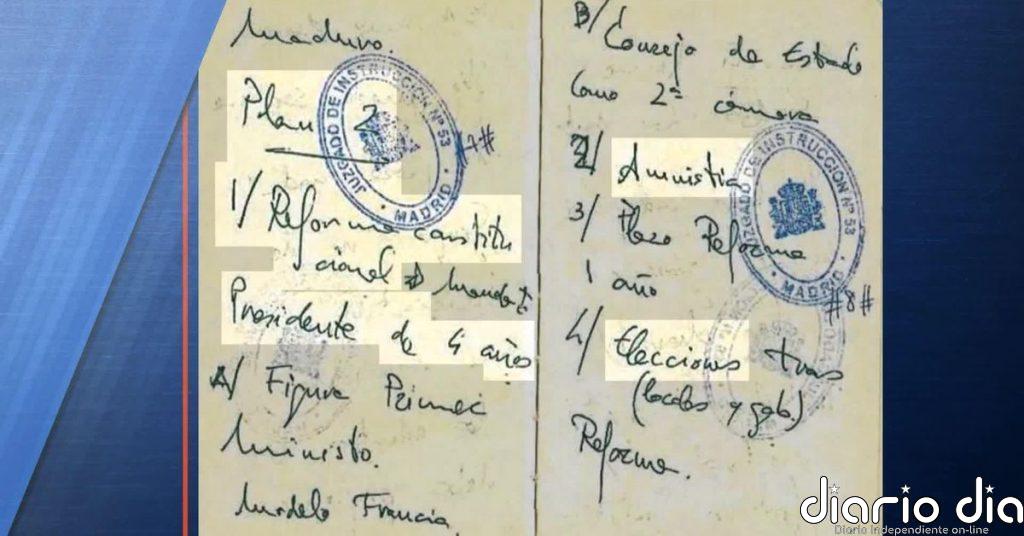 Maduro.
Plan 2
1/ Reforma constitu
cional Mandato
Presidente de 4 años
A/ Figura Primer
Ministo.
Modelo Francia
JUZGADO DE INSTRUCCION Nº 53
MADRID
#7#
B/ Consejo de Estado
Como 2ª cámara
2/ Amnistia
3/ Plazo Reforma
1 año
4/ Elecciones tras
(locales y gob.)
Reforma.
JUZGADO DE INSTRUCCION Nº 53
MADRID
#8#
diario dia
Diario Independiente on-line